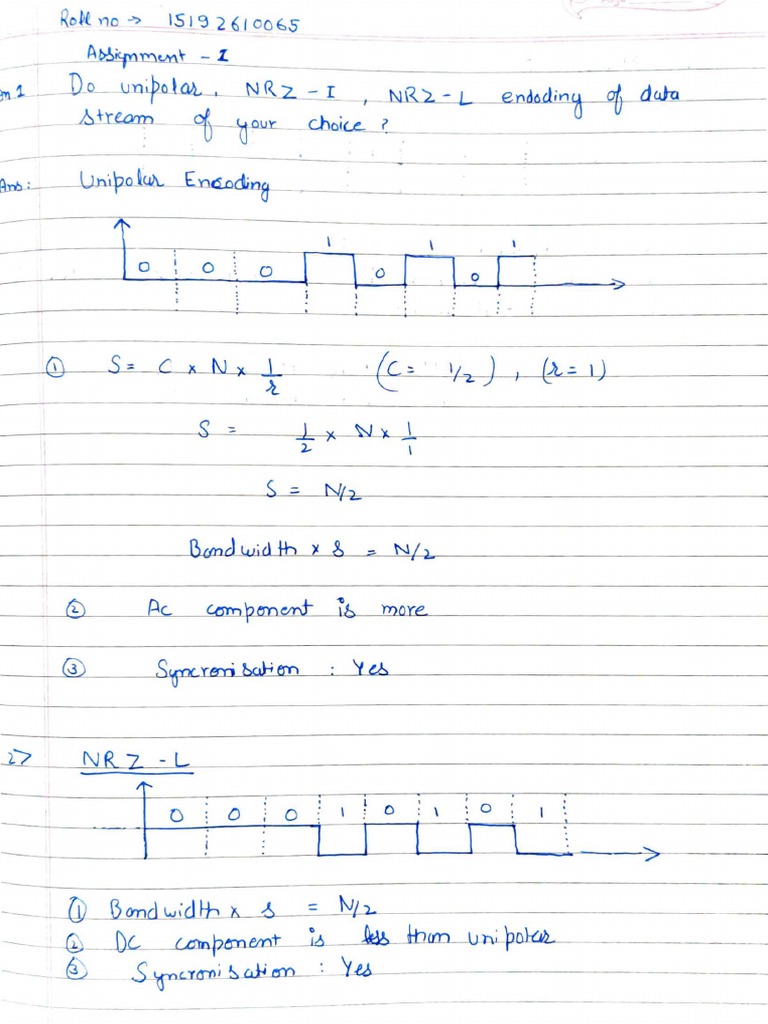 Roll no → 15192610065
Assignment - I
on 1 Do unipolar, NRZ-I, NRZ-L endoding of data
stream of your choice?
Ans: Unipolar Encoding
0 0 0 1 0 1 0 1
① S = C x N x 1/r (C = 1/2), (r = 1)
S = 1/2 x N x 1/1
S = N/2
Bandwidth x S = N/2
② Ac component is more
③ Syncronisation : Yes
2> NRZ-L
0 0 0 1 0 1 0 1
① Bandwidth x s = N/2
② DC component is less than unipolar
③ Syncronisation : Yes